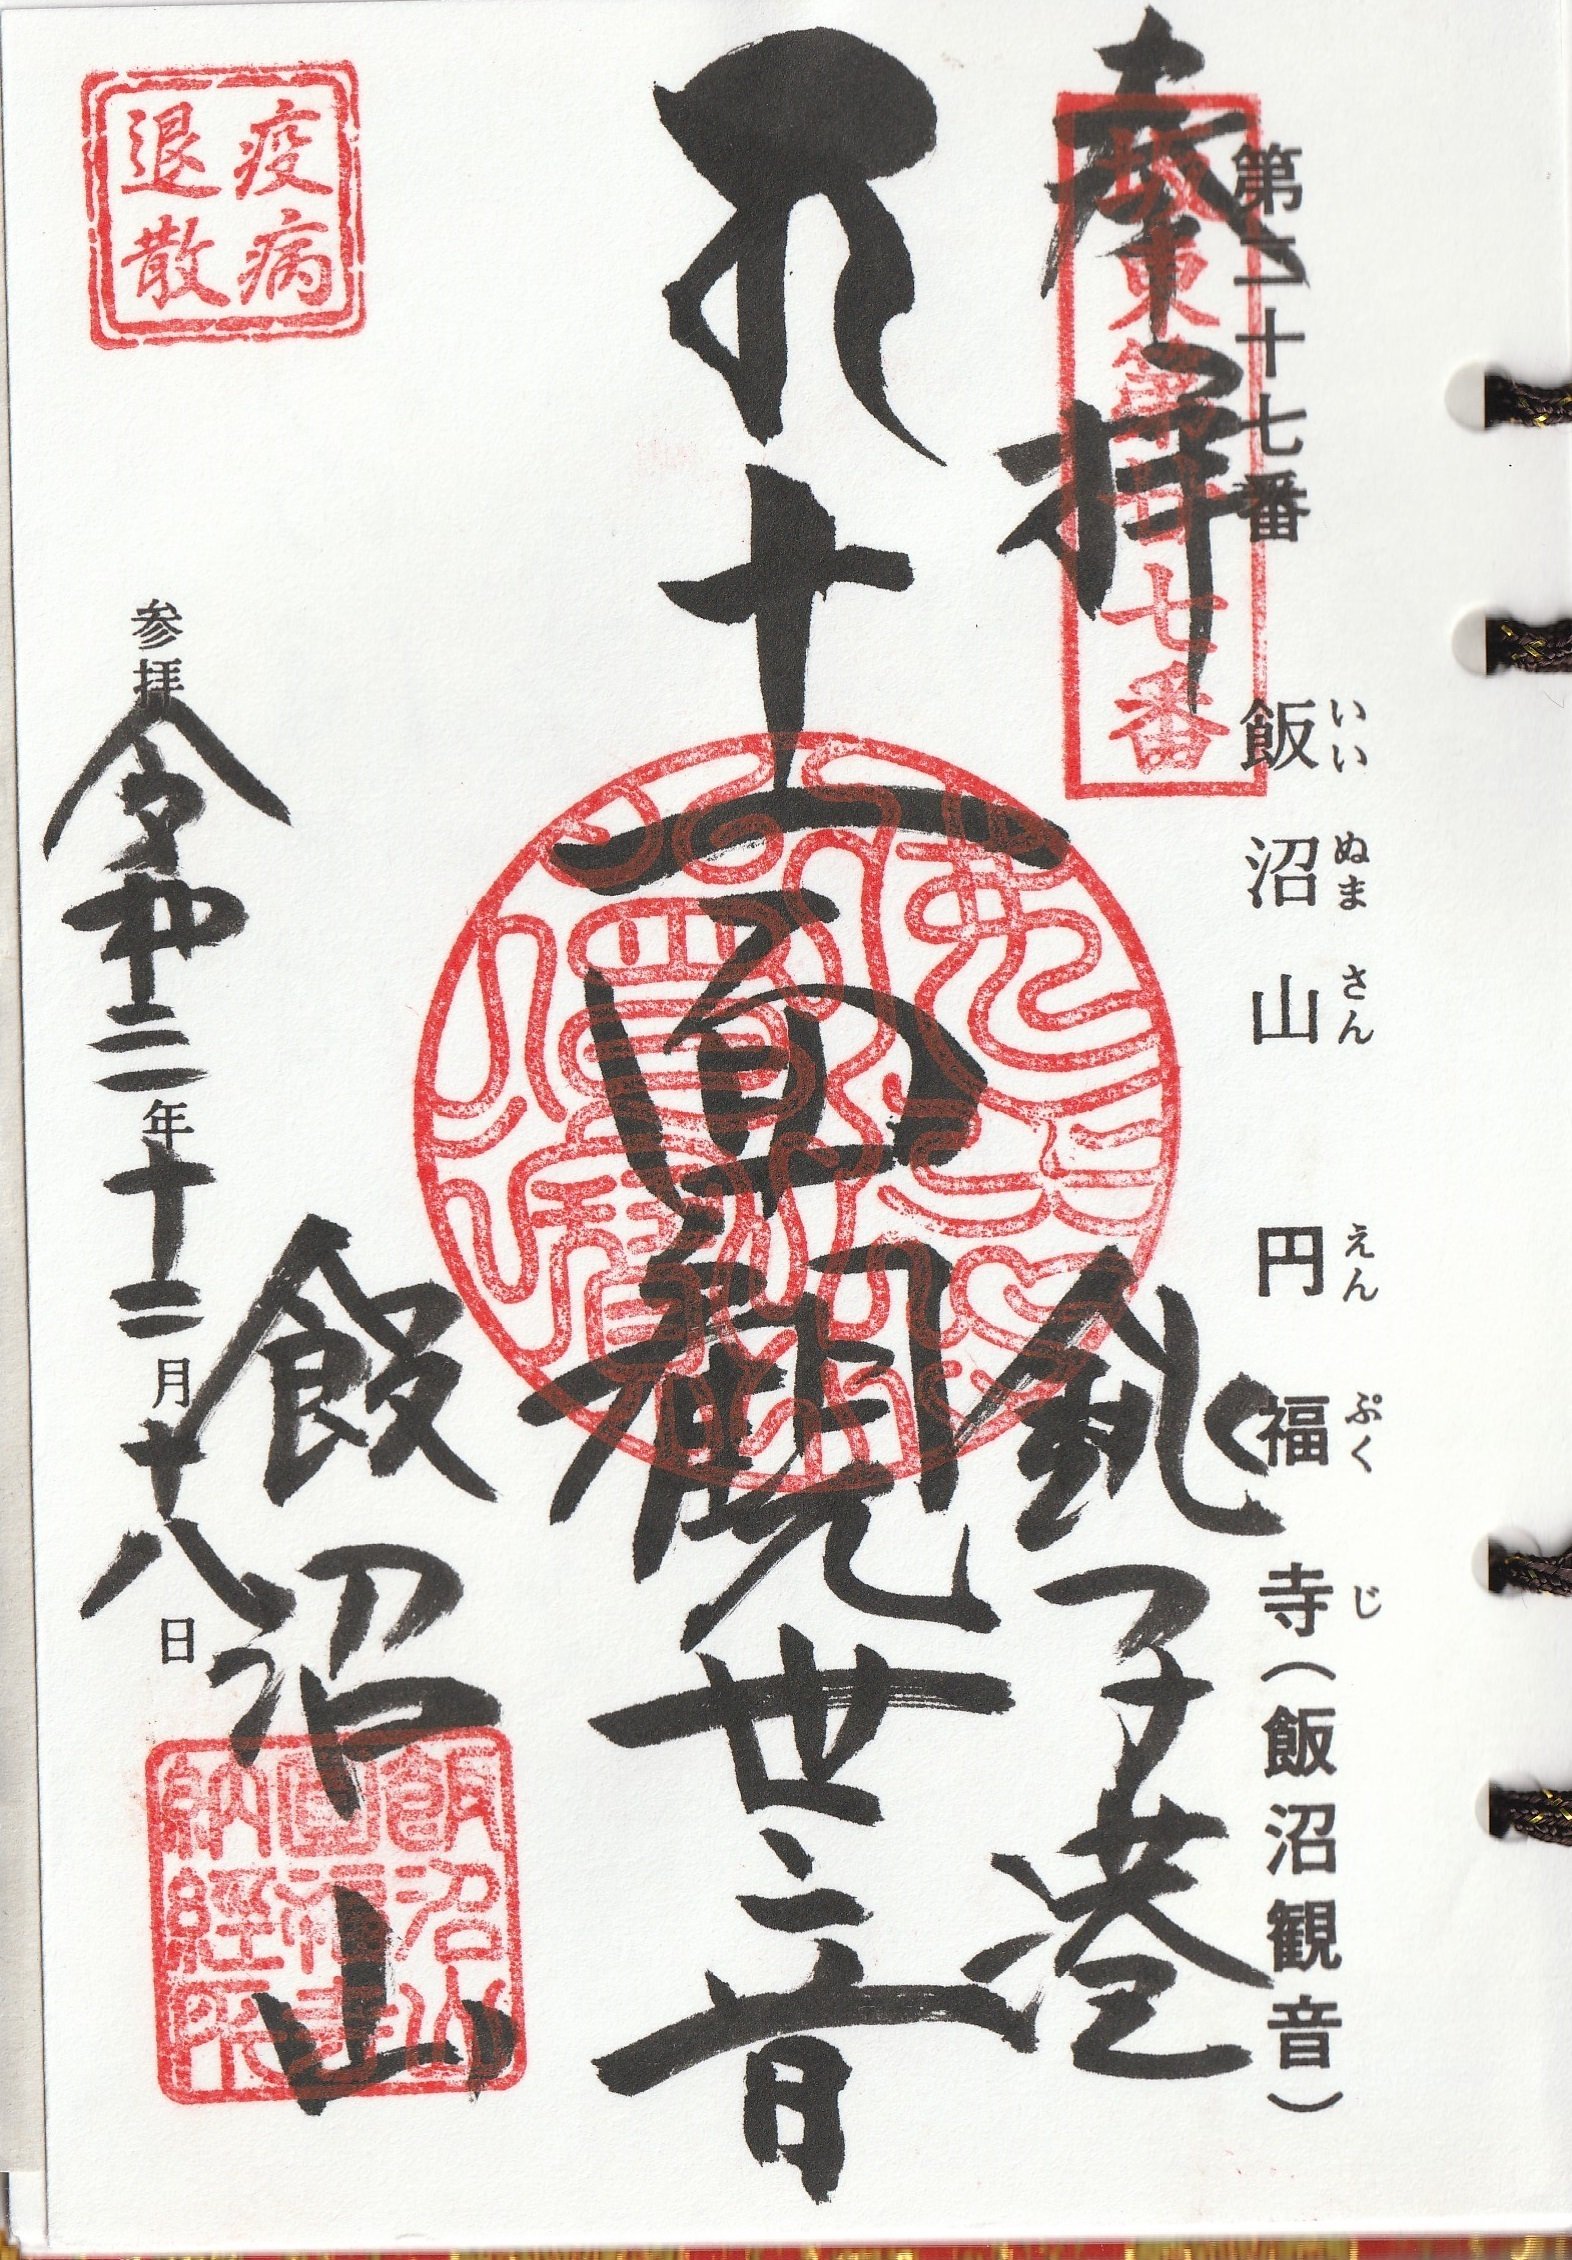 第二十七番 飯沼山 円福寺（飯沼観音）
いいぬまさん えんぷくじ
奉拝
坂東第廿七番
銚子港
十一面観世音
飯沼山
疫病
退散
参拝 令和二年十二月十八日
飯沼山
圓福寺
納経所